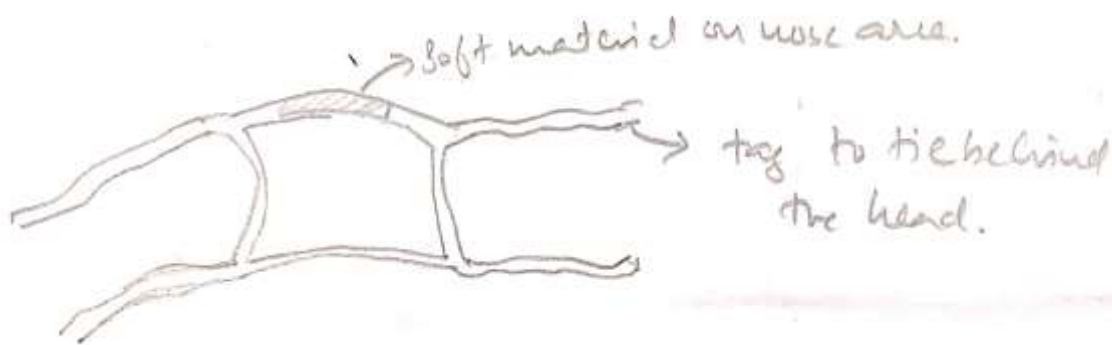 Soft material on nose area.
tag to tie behind
the head.